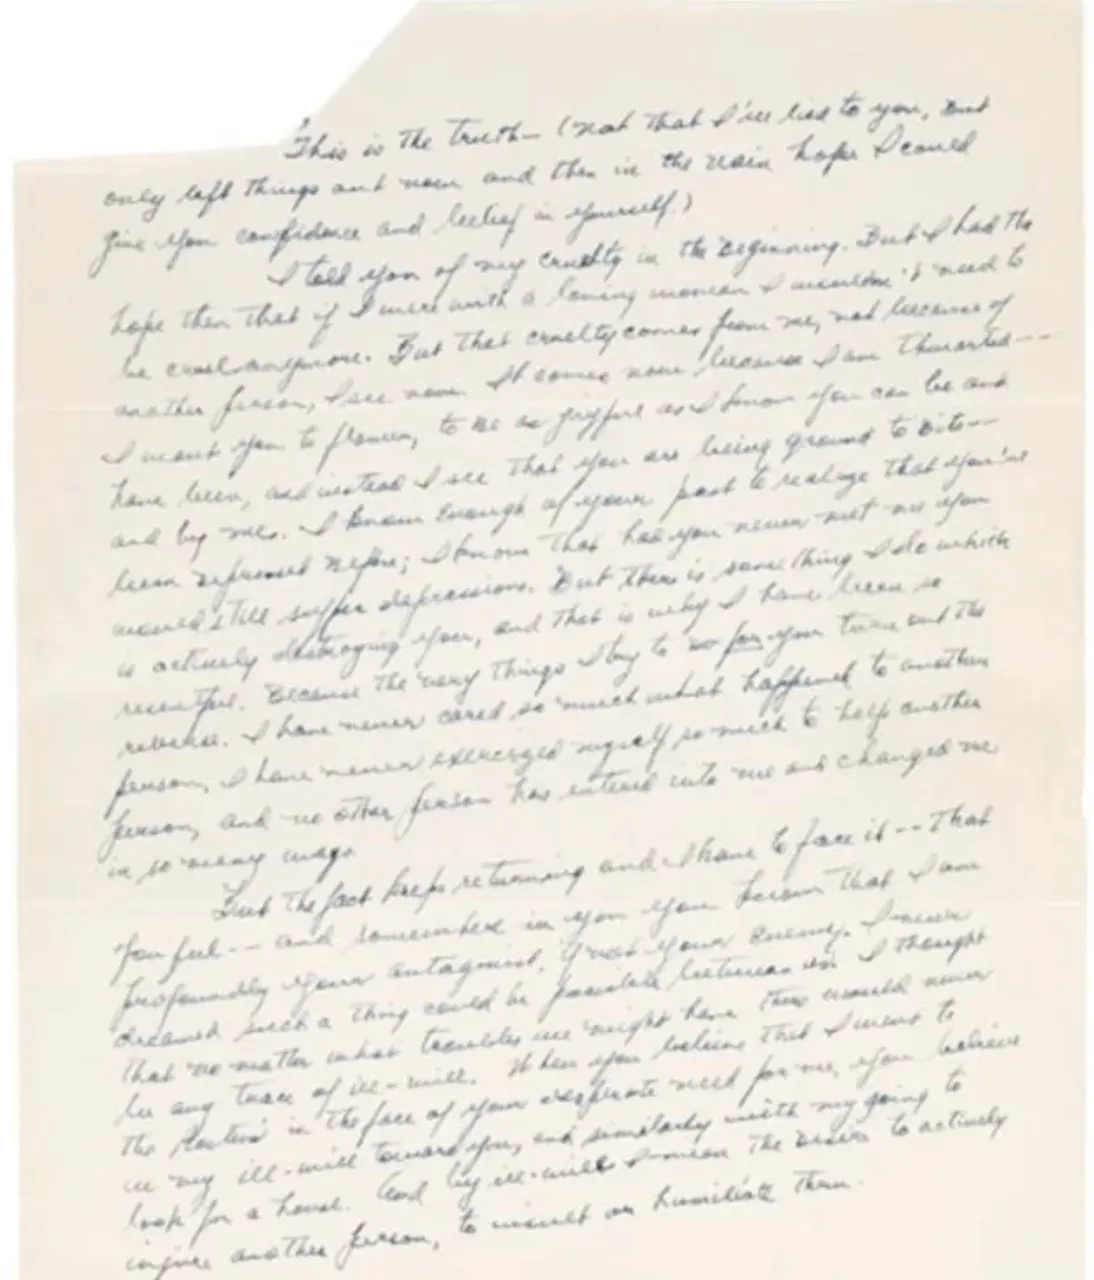 This is the truth — (not that I've lied to you, but
only left things out now and then in the vain hope I could
give you confidence and belief in yourself.)
I told you of my cruelty in the beginning. But I had the
hope then that if I were with a loving woman I wouldn't need to
be cruel anymore. But that cruelty comes from me, not because of
another person, I see now. It comes now because I am thwarted --
I want you to flower, to be as joyful as I know you can be and
have been, and instead I see that you are being ground to bits --
and by me. I know enough of your past to realize that you've
been depressed before; I know that had you never met me you
would still suffer depressions. But there is something I do which
is actively destroying you, and that is why I have been so
resentful. Because the very things I try to do for you turn out the
reverse. I have never cared so much what happened to another
person, I have never exercized myself so much to help another
person, and no other person has entered into me and changed me
in so many ways.
But the fact keeps returning and I have to face it -- that
you feel -- and somewhere in you you know that I am
profoundly your antagonist, if not your enemy. I never
dreamed such a thing could be possible between us. I thought
that no matter what troubles we might have there would never
be any trace of ill-will. When you believe that I went to
the in the face of your desperate need for me, you believe
in my ill-will toward you, and similarly with my going to
look for a house. And by ill-will I mean the desire to actively
injure another person, to insult or humiliate them.